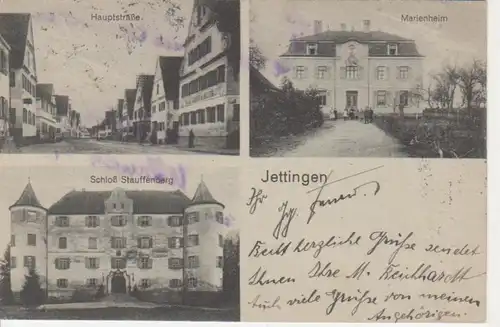 Hauptstraße.
Marienheim
Schloß Stauffenberg
Jettingen
Ihr
Recht herzliche Grüße sendet
Ihnen Ihre M. Reichhardt
auch viele Grüße von meinen
Angehörigen.